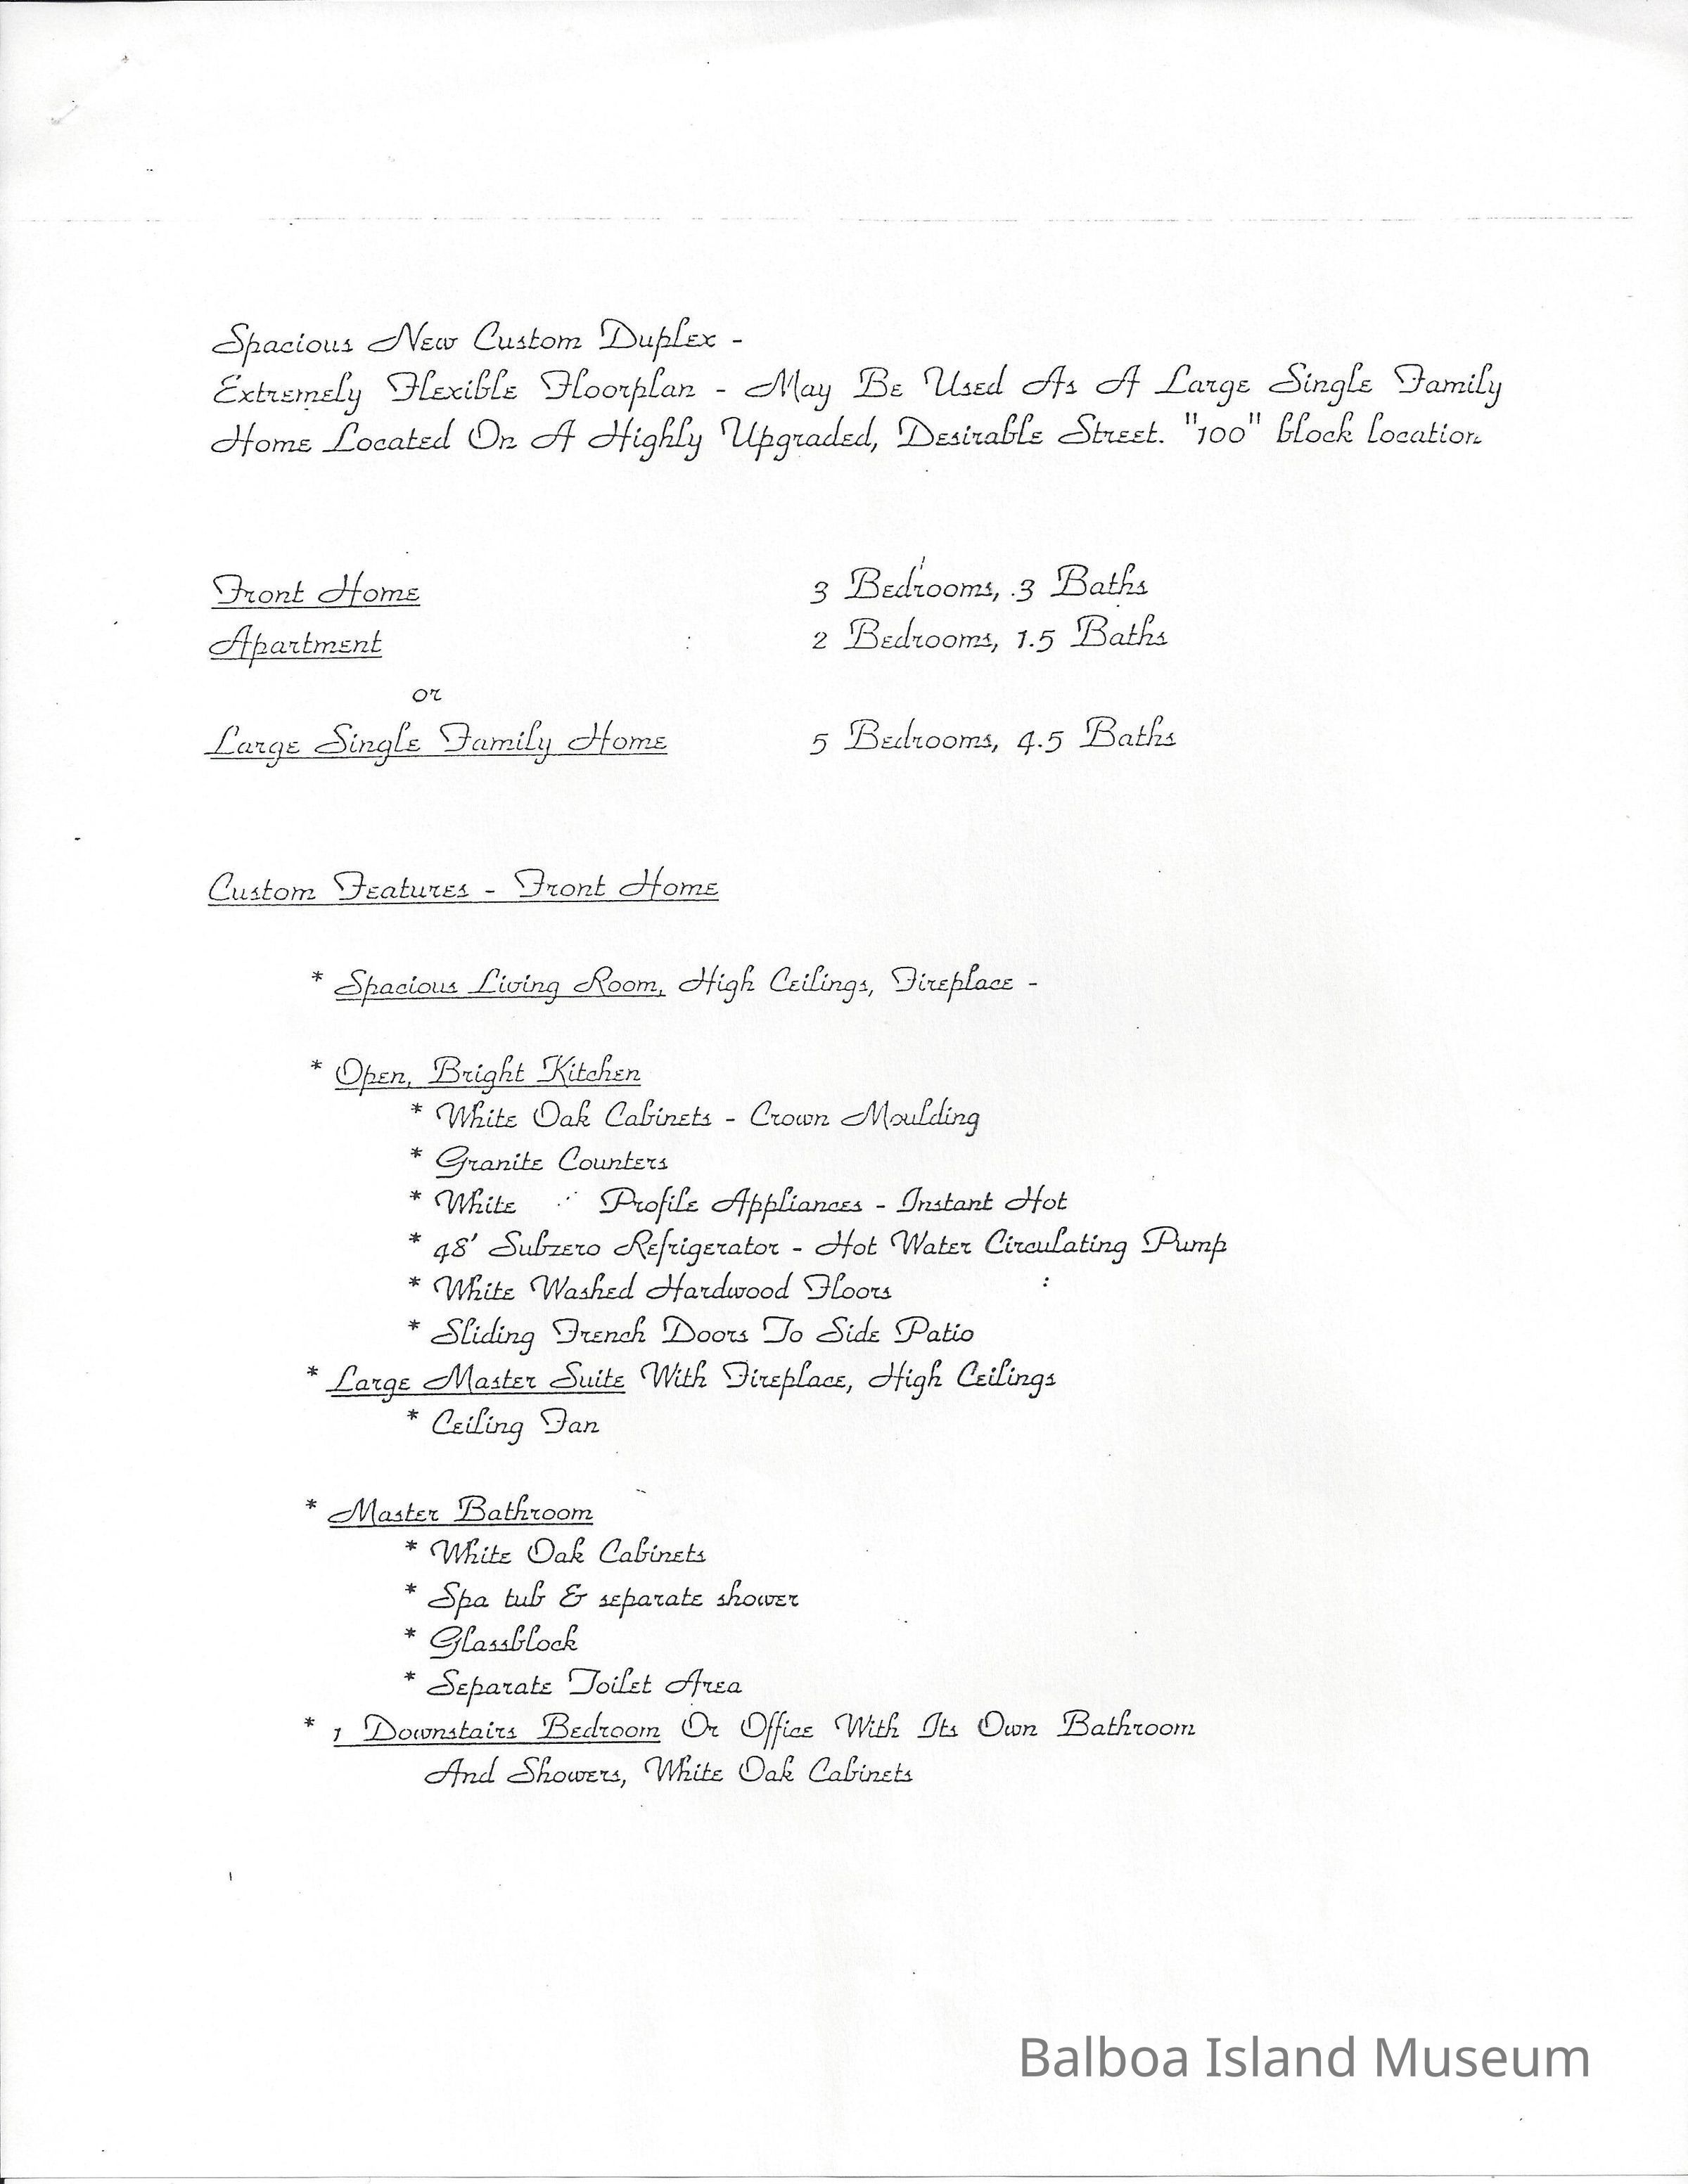 Spacious New Custom Duplex -
Extremely Flexible Floorplan - May Be Used As A Large Single Family
Home Located On A Highly Upgraded, Desirable Street. "100" block location
Front Home 3 Bedrooms, 3 Baths
Apartment 2 Bedrooms, 1.5 Baths
or
Large Single Family Home 5 Bedrooms, 4.5 Baths
Custom Features - Front Home
* Spacious Living Room, High Ceilings, Fireplace -
* Open, Bright Kitchen
* White Oak Cabinets - Crown Moulding
* Granite Counters
* White Profile Appliances - Instant Hot
* 48' Subzero Refrigerator - Hot Water Circulating Pump
* White Washed Hardwood Floors
* Sliding French Doors To Side Patio
* Large Master Suite With Fireplace, High Ceilings
* Ceiling Fan
* Master Bathroom
* White Oak Cabinets
* Spa tub & separate shower
* Glassblock
* Separate Toilet Area
* 1 Downstairs Bedroom Or Office With Its Own Bathroom
And Showers, White Oak Cabinets
Balboa Island Museum